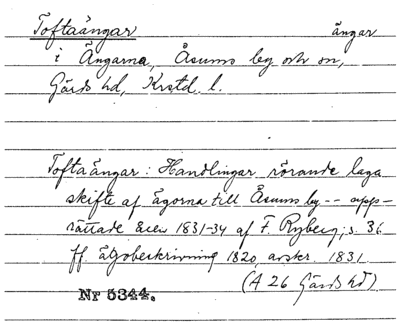 Toftaängar ängar
i Ängarna, Åsums by och sn,
Gärds hd, Krstd. l.
Toftaängar: Handlingar rörande laga
skifte af ägorna till Åsums by -- upp-
rättade åren 1831-34 af F. Ryberg; s. 36
ff. Ägobeskrivning 1820, avskr. 1831
(A 26 Gärds hd)
Nr 5344.